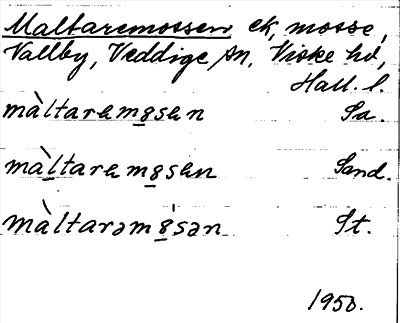 Maltaremossen ek, mosse,
Vallby, Veddige sn, Viske hd,
Hall. l.
màltarəm8sən Sa.
màltarəm8sən Sand.
màltarəm8sən St.
1950.